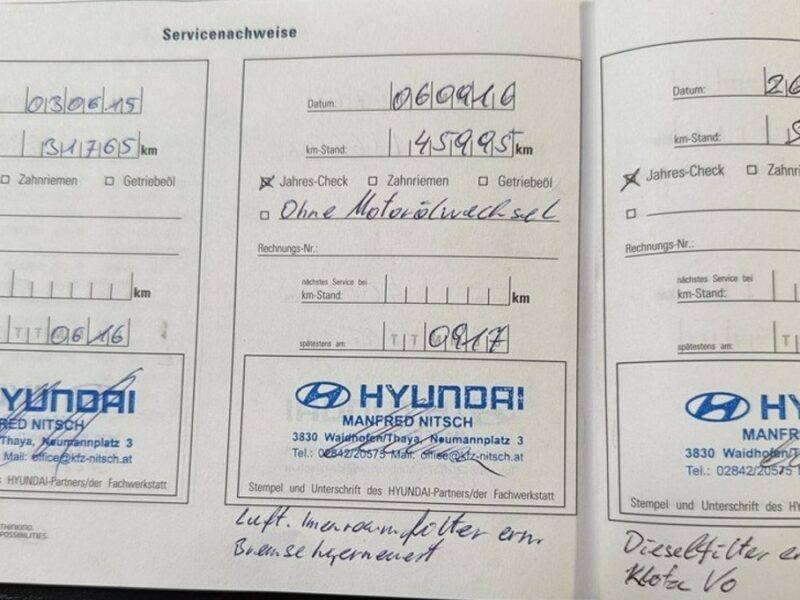 Servicenachweise
030615
31765 km
Zahnriemen Getriebeöl
km
TT0616
HYUNDAI
MANFRED NITSCH
Thaya, Neumannplatz 3
Mail: office@kfz-nitsch.at
Stempel und Unterschrift des HYUNDAI-Partners/der Fachwerkstatt
THINKING.
POSSIBILITIES.
Datum: 060916
km-Stand: 45995 km
Jahres-Check Zahnriemen Getriebeöl
Ohne Motorölwechsel
Rechnungs-Nr.:
nächstes Service bei
km-Stand: km
spätestens am: TT0917
HYUNDAI
MANFRED NITSCH
3830 Waidhofen/Thaya, Neumannplatz 3
Tel.: 02842/20575 Mail: office@kfz-nitsch.at
Stempel und Unterschrift des HYUNDAI-Partners/der Fachwerkstatt
Luft. Innenraumfilter ern
Bremse hi erneuert
Datum: 26
km-Stand:
Jahres-Check Zahnri
Rechnungs-Nr.:
nächstes Service bei
km-Stand:
spätestens am: T
HY
MANFR
3830 Waidhofen
Tel.: 02842/20575
Stempel und Unterschrift des HY
Dieselfilter er